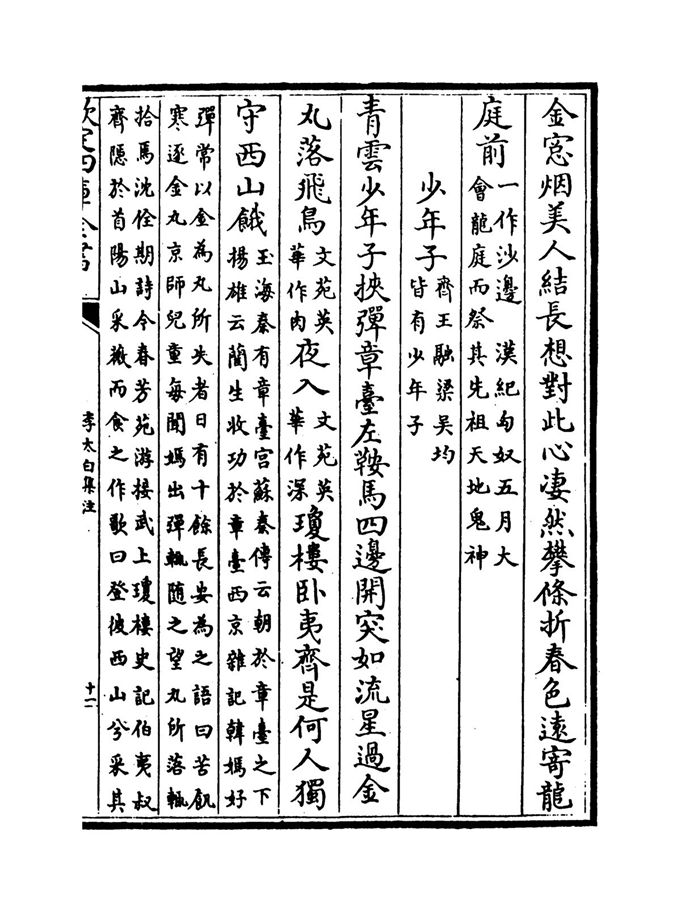 金窓烟美人結長想對此心凄然攀條折春色遠寄龍
庭前一作沙邊　漢紀匈奴五月大
會龍庭而祭其先祖天地鬼神
少年子齊王融梁吴均
皆有少年子
青雲少年子挾彈章臺左鞍馬四邊開突如流星過金
丸落飛鳥文苑英
華作肉夜入文苑英
華作深瓊樓卧夷齊是何人獨
守西山餓玉海秦有章臺宫蘇秦傳云朝於章臺之下
揚雄云藺生收功於章臺西京雜記韓嫣好
彈常以金為丸所失者日有十餘長安為之語曰苦飢
寒逐金丸京師兒童每聞嫣出彈輒随之望丸所落輒
拾焉沈佺期詩今春芳苑游接武上瓊樓史記伯夷叔
齊隠於首陽山采薇而食之作歌曰登彼西山兮采其
欽定四庫全書
李太白集注
十二